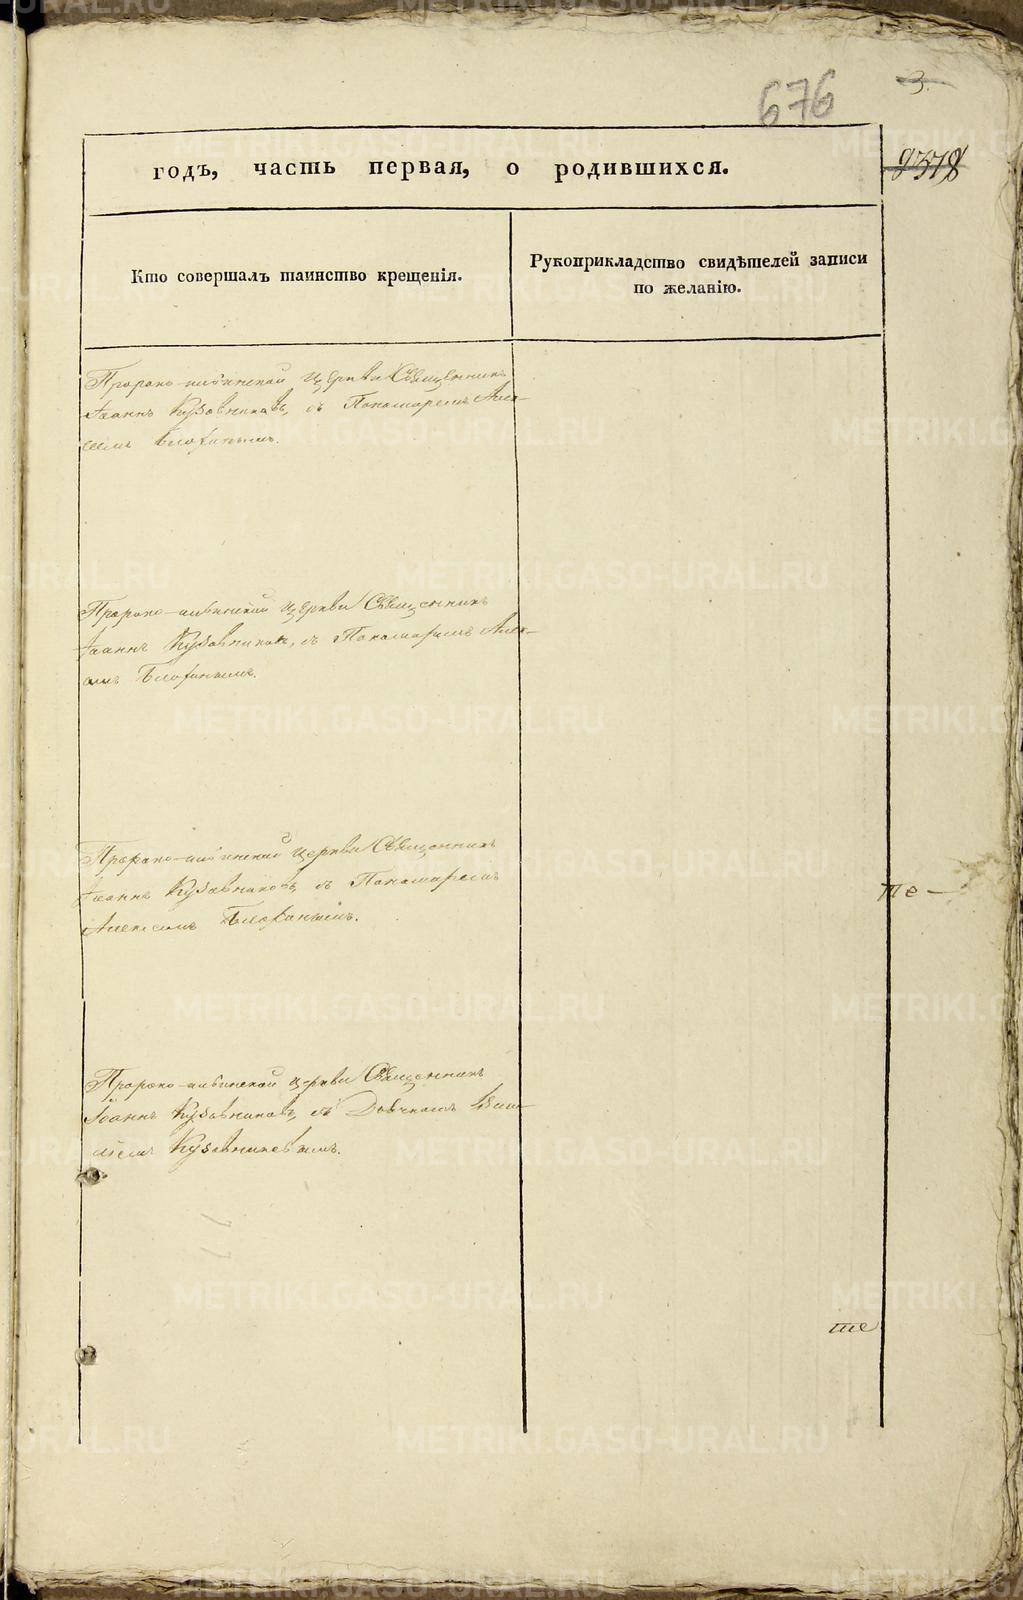 676
3.
2378
годъ, часть первая, о родившихся.
Кто совершалъ таинство крещенія.
Рукоприкладство свидѣтелей записи
по желанію.
Пророко-ильинской церкви Священникъ
Іоаннъ Кузовниковъ, съ Пономаремъ Але-
Пророко-ильинской церкви Священникъ
Іоаннъ Кузовниковъ, съ Пономаремъ Алек-
Пророко-ильинской церкви Священникъ
Іоаннъ Кузовниковъ, съ Пономаремъ
Алексеемъ
те-
Пророко-ильинской церкви Священникъ
Іоаннъ Кузовниковъ, съ Дьячкомъ Васи-
Кузовниковымъ.
ше
METRIKI.GASO-URAL.RU